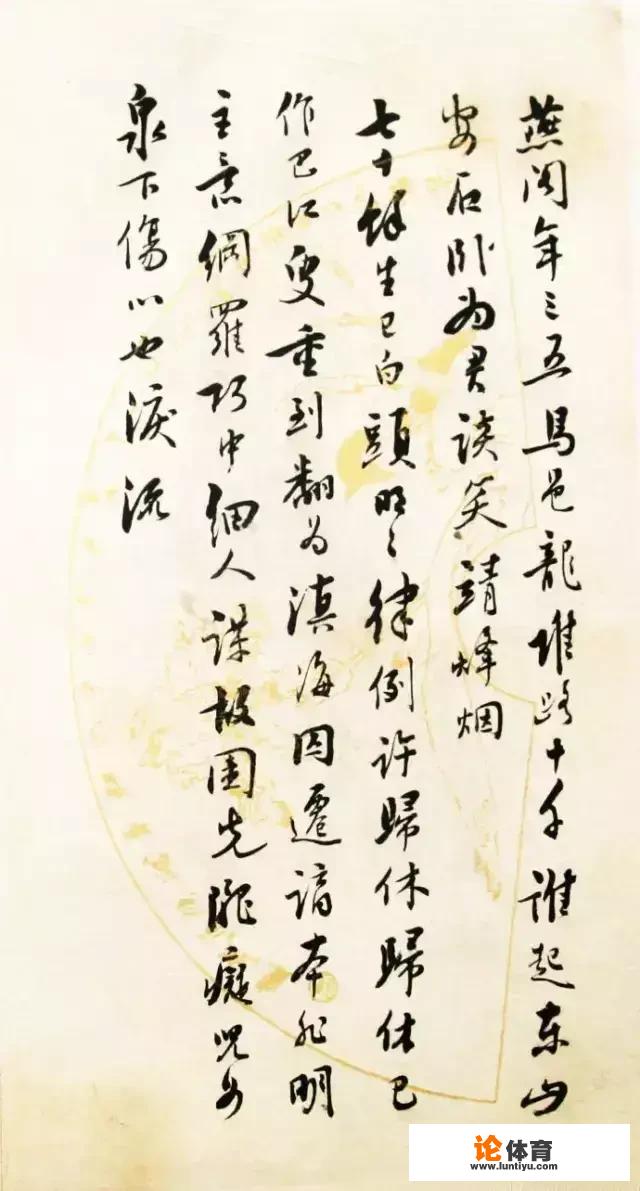 燕閣年三五馬邑龍堆路十千誰起東山
安石卧为君談笑靖烽烟
七十餘生已白頭明〻律例許歸休歸休已
作巴江叟重到翻为滇海囚遷謫本非明
主意網羅巧中細人謀故園先隴癡兒女
泉下傷心也淚流
论体育
www.luntiyu.com